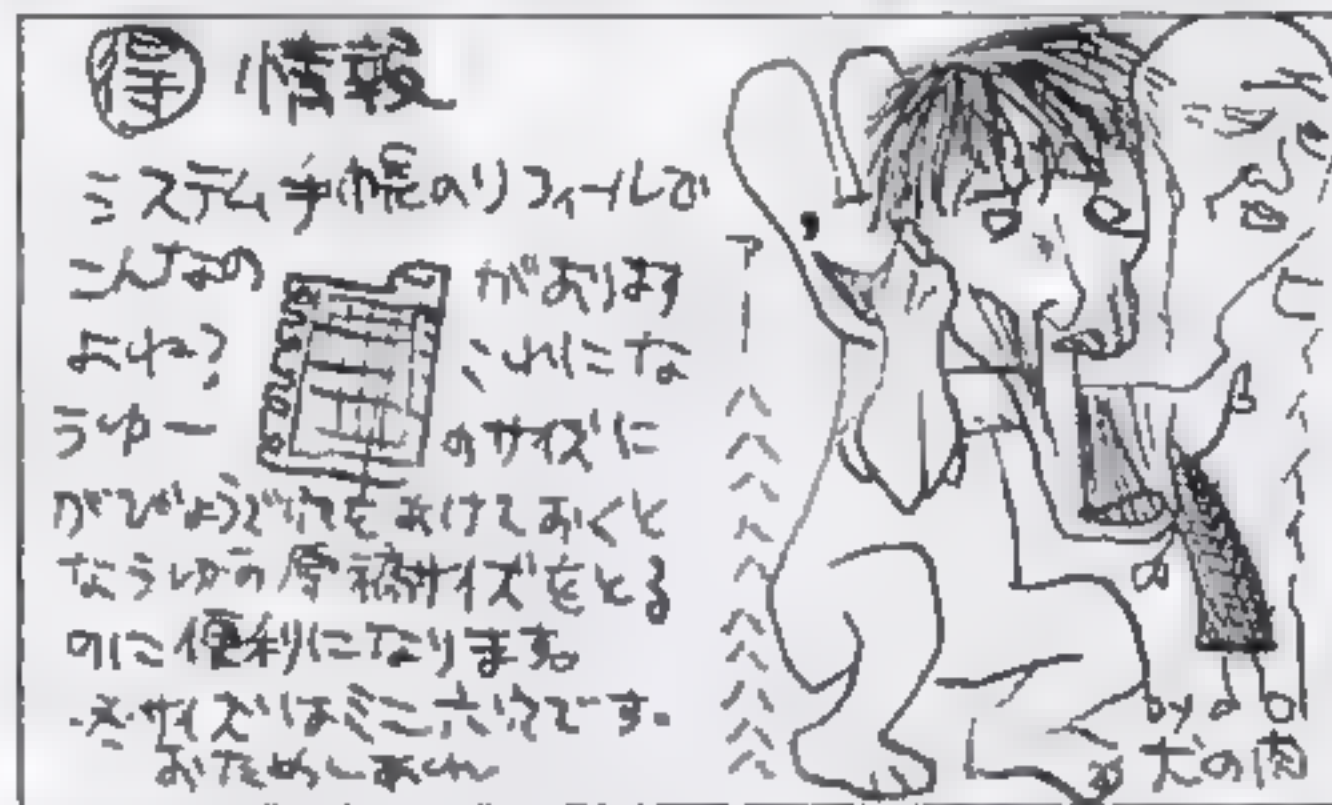 得 情報
ミステム手帳のリフィールで
こんなの がおります
よね? これにな
うゆー のサイズに
がびょうで穴をあけておくと
なうゆの原稿サイズをとる
のに便利になります。
※サイズはミニ六穴です。
おためしあれ
アーヘヘヘヘヘヘヘヘヘ
by
犬の肉